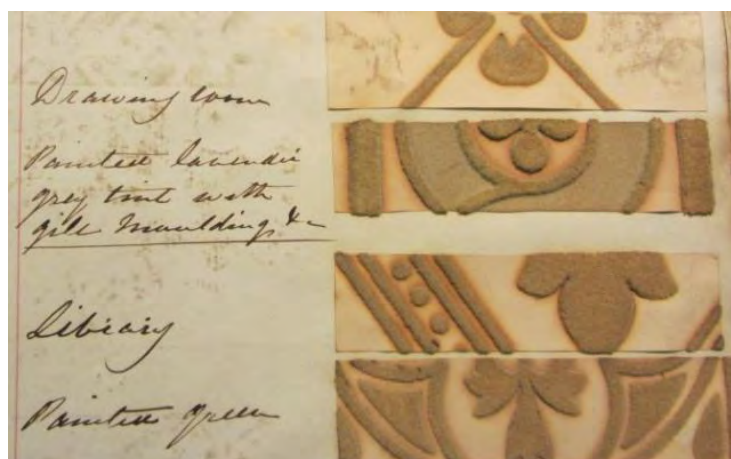 Drawing room
Painted lavender
grey tint with
gilt moulding, &c
Library
Painted green